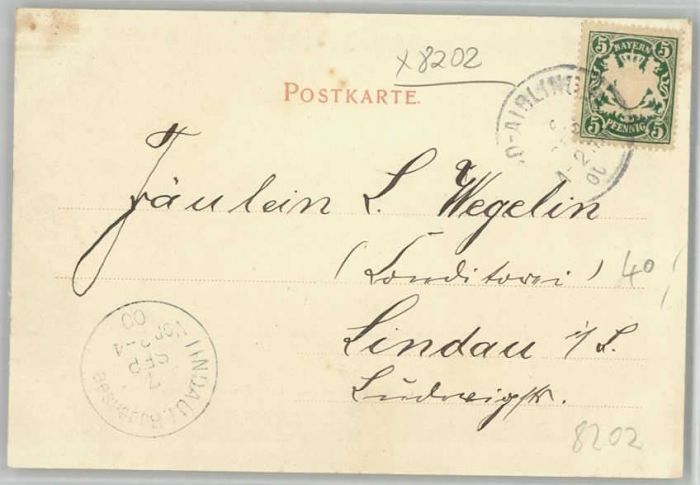 x8202
5 BAYERN 5
5 PFENNIG 5
POSTKARTE.
D-AIBLING
00
Fräulein L. Wegelin
(Conditorei)
40
Lindau i/L.
Ludwigstr.
LINDAU I. B.
7
SEP
00
8202